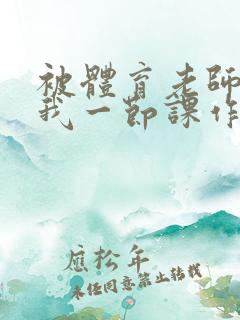 被體育老師
我一節課作
應松年
未任同意禁止转载